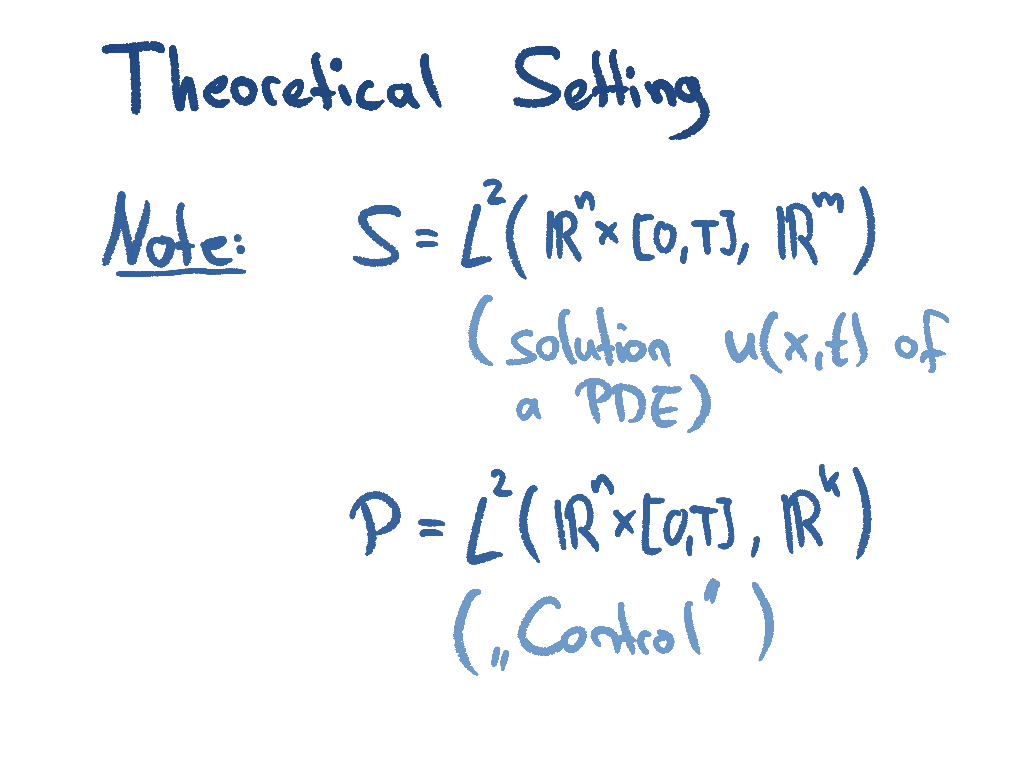 Theoretical Setting
Note: S = L²(ℝⁿ × [0,T], ℝᵐ)
(solution u(x,t) of
a PDE)
P = L²(ℝⁿ × [0,T], ℝᵏ)
(„Control")